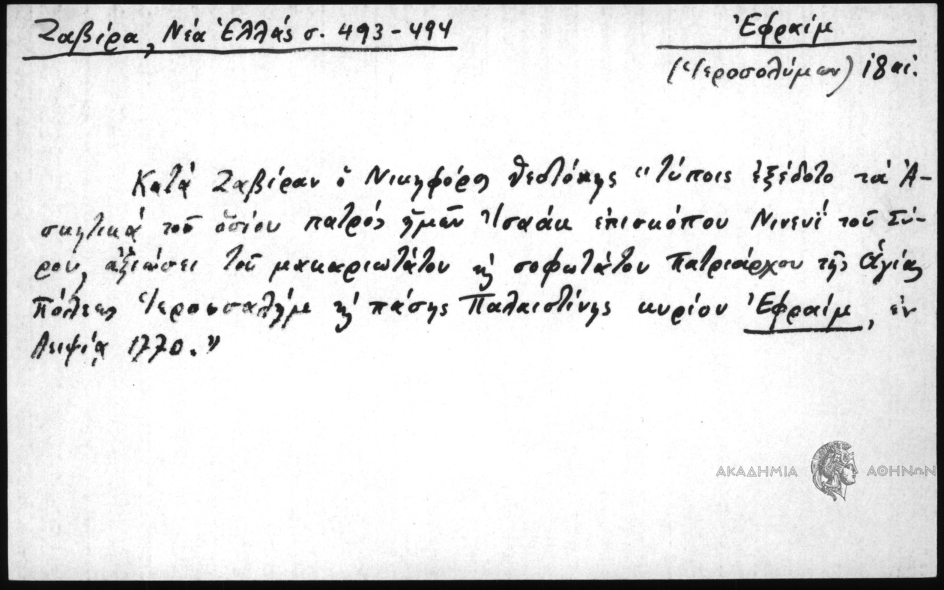 Ζαβίρα, Νέα Ἑλλάς σ. 493-494
Ἐφραίμ
(Ἱεροσολύμων) 18 αἰ.
Κατά Ζαβίραν ὁ Νικηφόρος Θεοτόκης "τύποις ἐξέδοτο τά Ἀ-
σκητικά τοῦ ὁσίου πατρός ἡμῶν Ἰσαάκ ἐπισκόπου Νινευΐ τοῦ Σύ-
ρου, ἀξιώσει τοῦ μακαριωτάτου ϗ σοφωτάτου πατριάρχου τῆς ἁγίας
πόλεως Ἱερουσαλήμ ϗ πάσης Παλαιστίνης κυρίου Ἐφραίμ, ἐν
Λειψίᾳ 1770."
ΑΚΑΔΗΜΙΑ ΑΘΗΝΩΝ